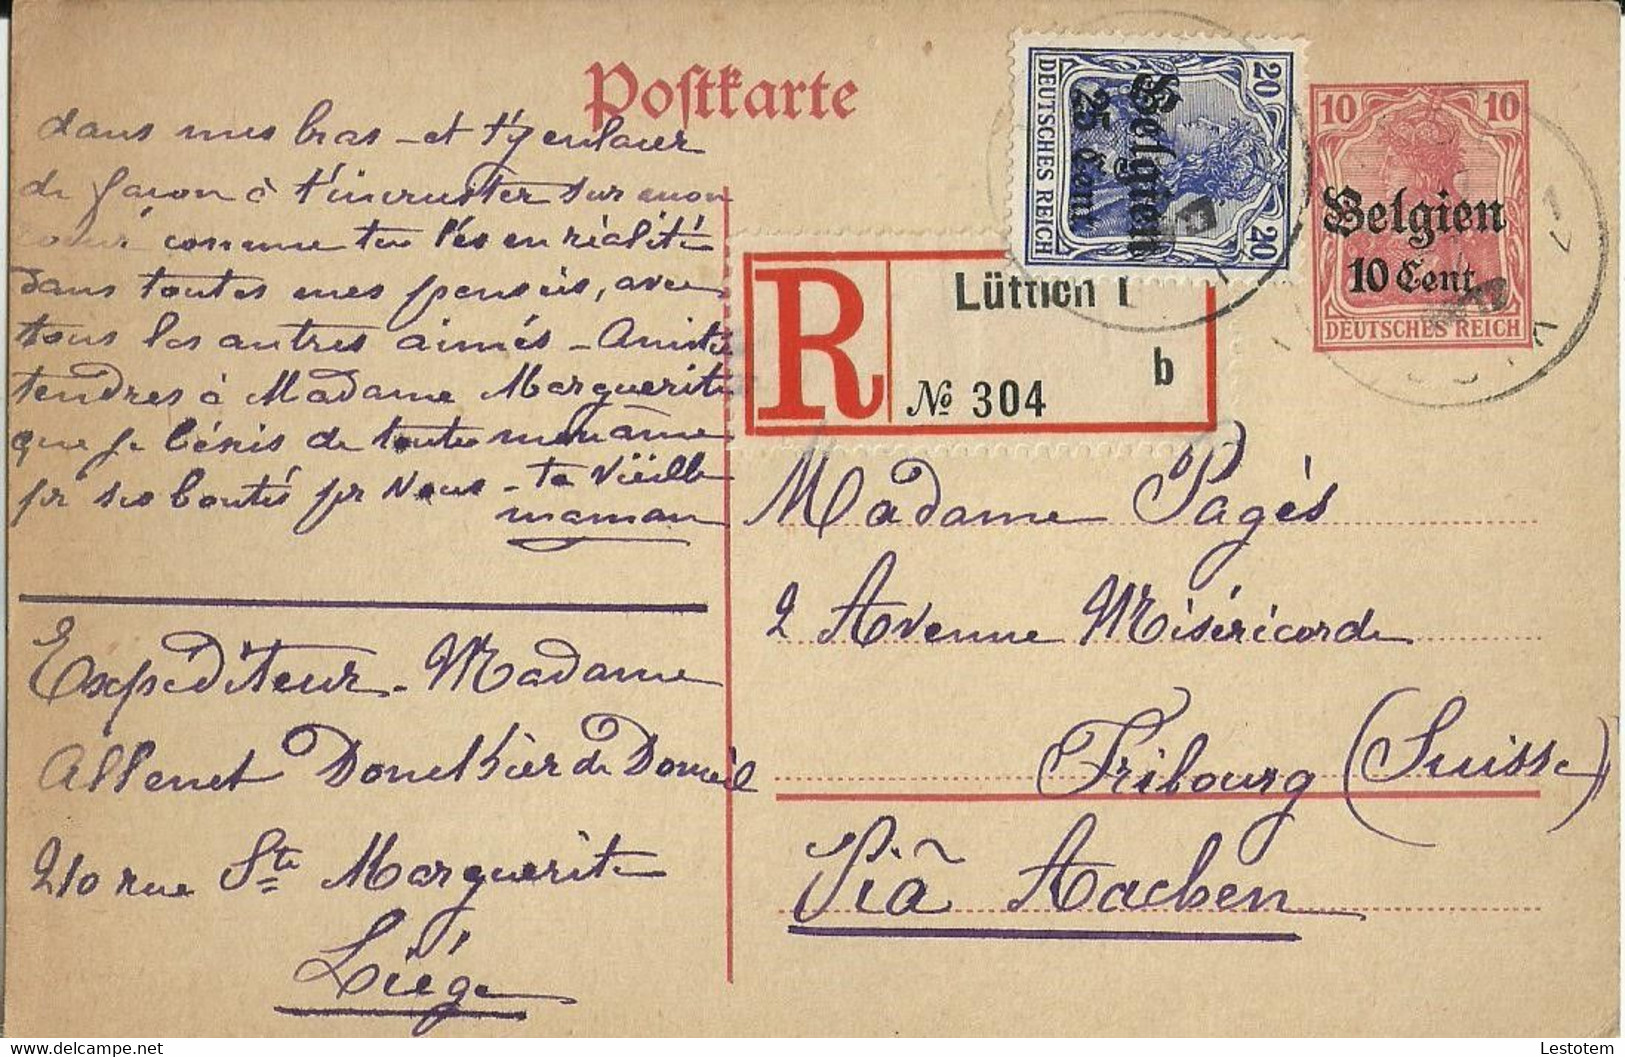 Postkarte
dans mes bras - et t'y enlacer
de façon à t'incruster sur mon
cœur comme tu l'es en réalité
dans toutes mes pensées, avec
tous les autres aimés - Amitiés
tendres à Madame Marguerite
que je bénis de toute mon âme
pr ses bontés pr Nous - ta vieille
maman
Expéditeur - Madame
Allenet Donckier de Donceel
210 rue Ste Marguerite
Liège
DEUTSCHES REICH
20 20
Belgien
25 Cent.
10 10
Belgien
10 Cent.
DEUTSCHES REICH
R
Lüttich 1
b
№ 304
Madame Pagès
2 Avenue Miséricorde
Fribourg (Suisse)
Via Aachen
https://www.delcampe.net
Lestotem